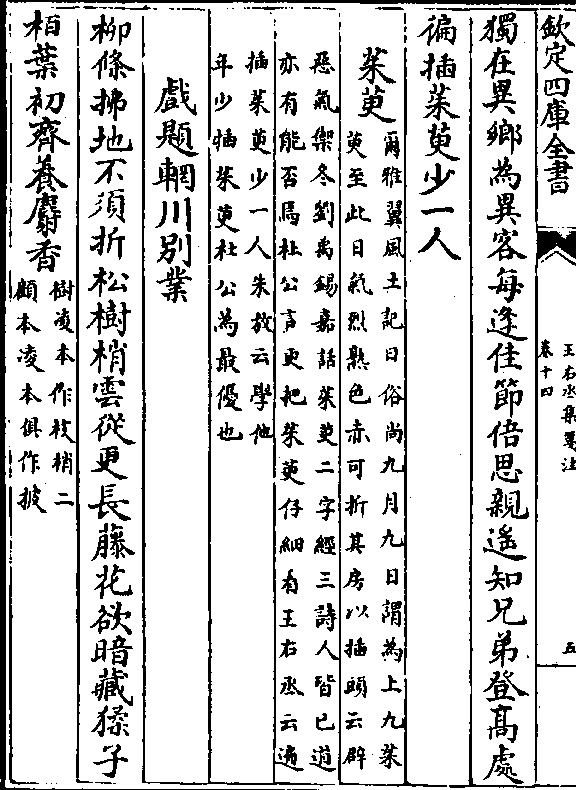 欽定四庫全書
王右丞集箋注
卷十四
五
獨在異鄉為異客每逢佳節倍思親遙知兄弟登髙處
徧插茱萸少一人
茱萸
爾雅翼風土記曰俗尚九月九日謂為上九茱
萸至此日氣烈熟色赤可折其房以插頭云辟
惡氣禦冬劉禹錫嘉話茱萸二字經三詩人皆已道
亦有能否焉杜公言更把茱萸仔細看王右丞云遍
插茱萸少一人朱放云學他
年少插茱萸杜公為最優也
戲題輞川別業
柳條拂地不須折松樹梢雲從更長藤花欲暗藏猱子
栢葉初齊養麝香
樹凌本作枝梢二
顧本凌本俱作披